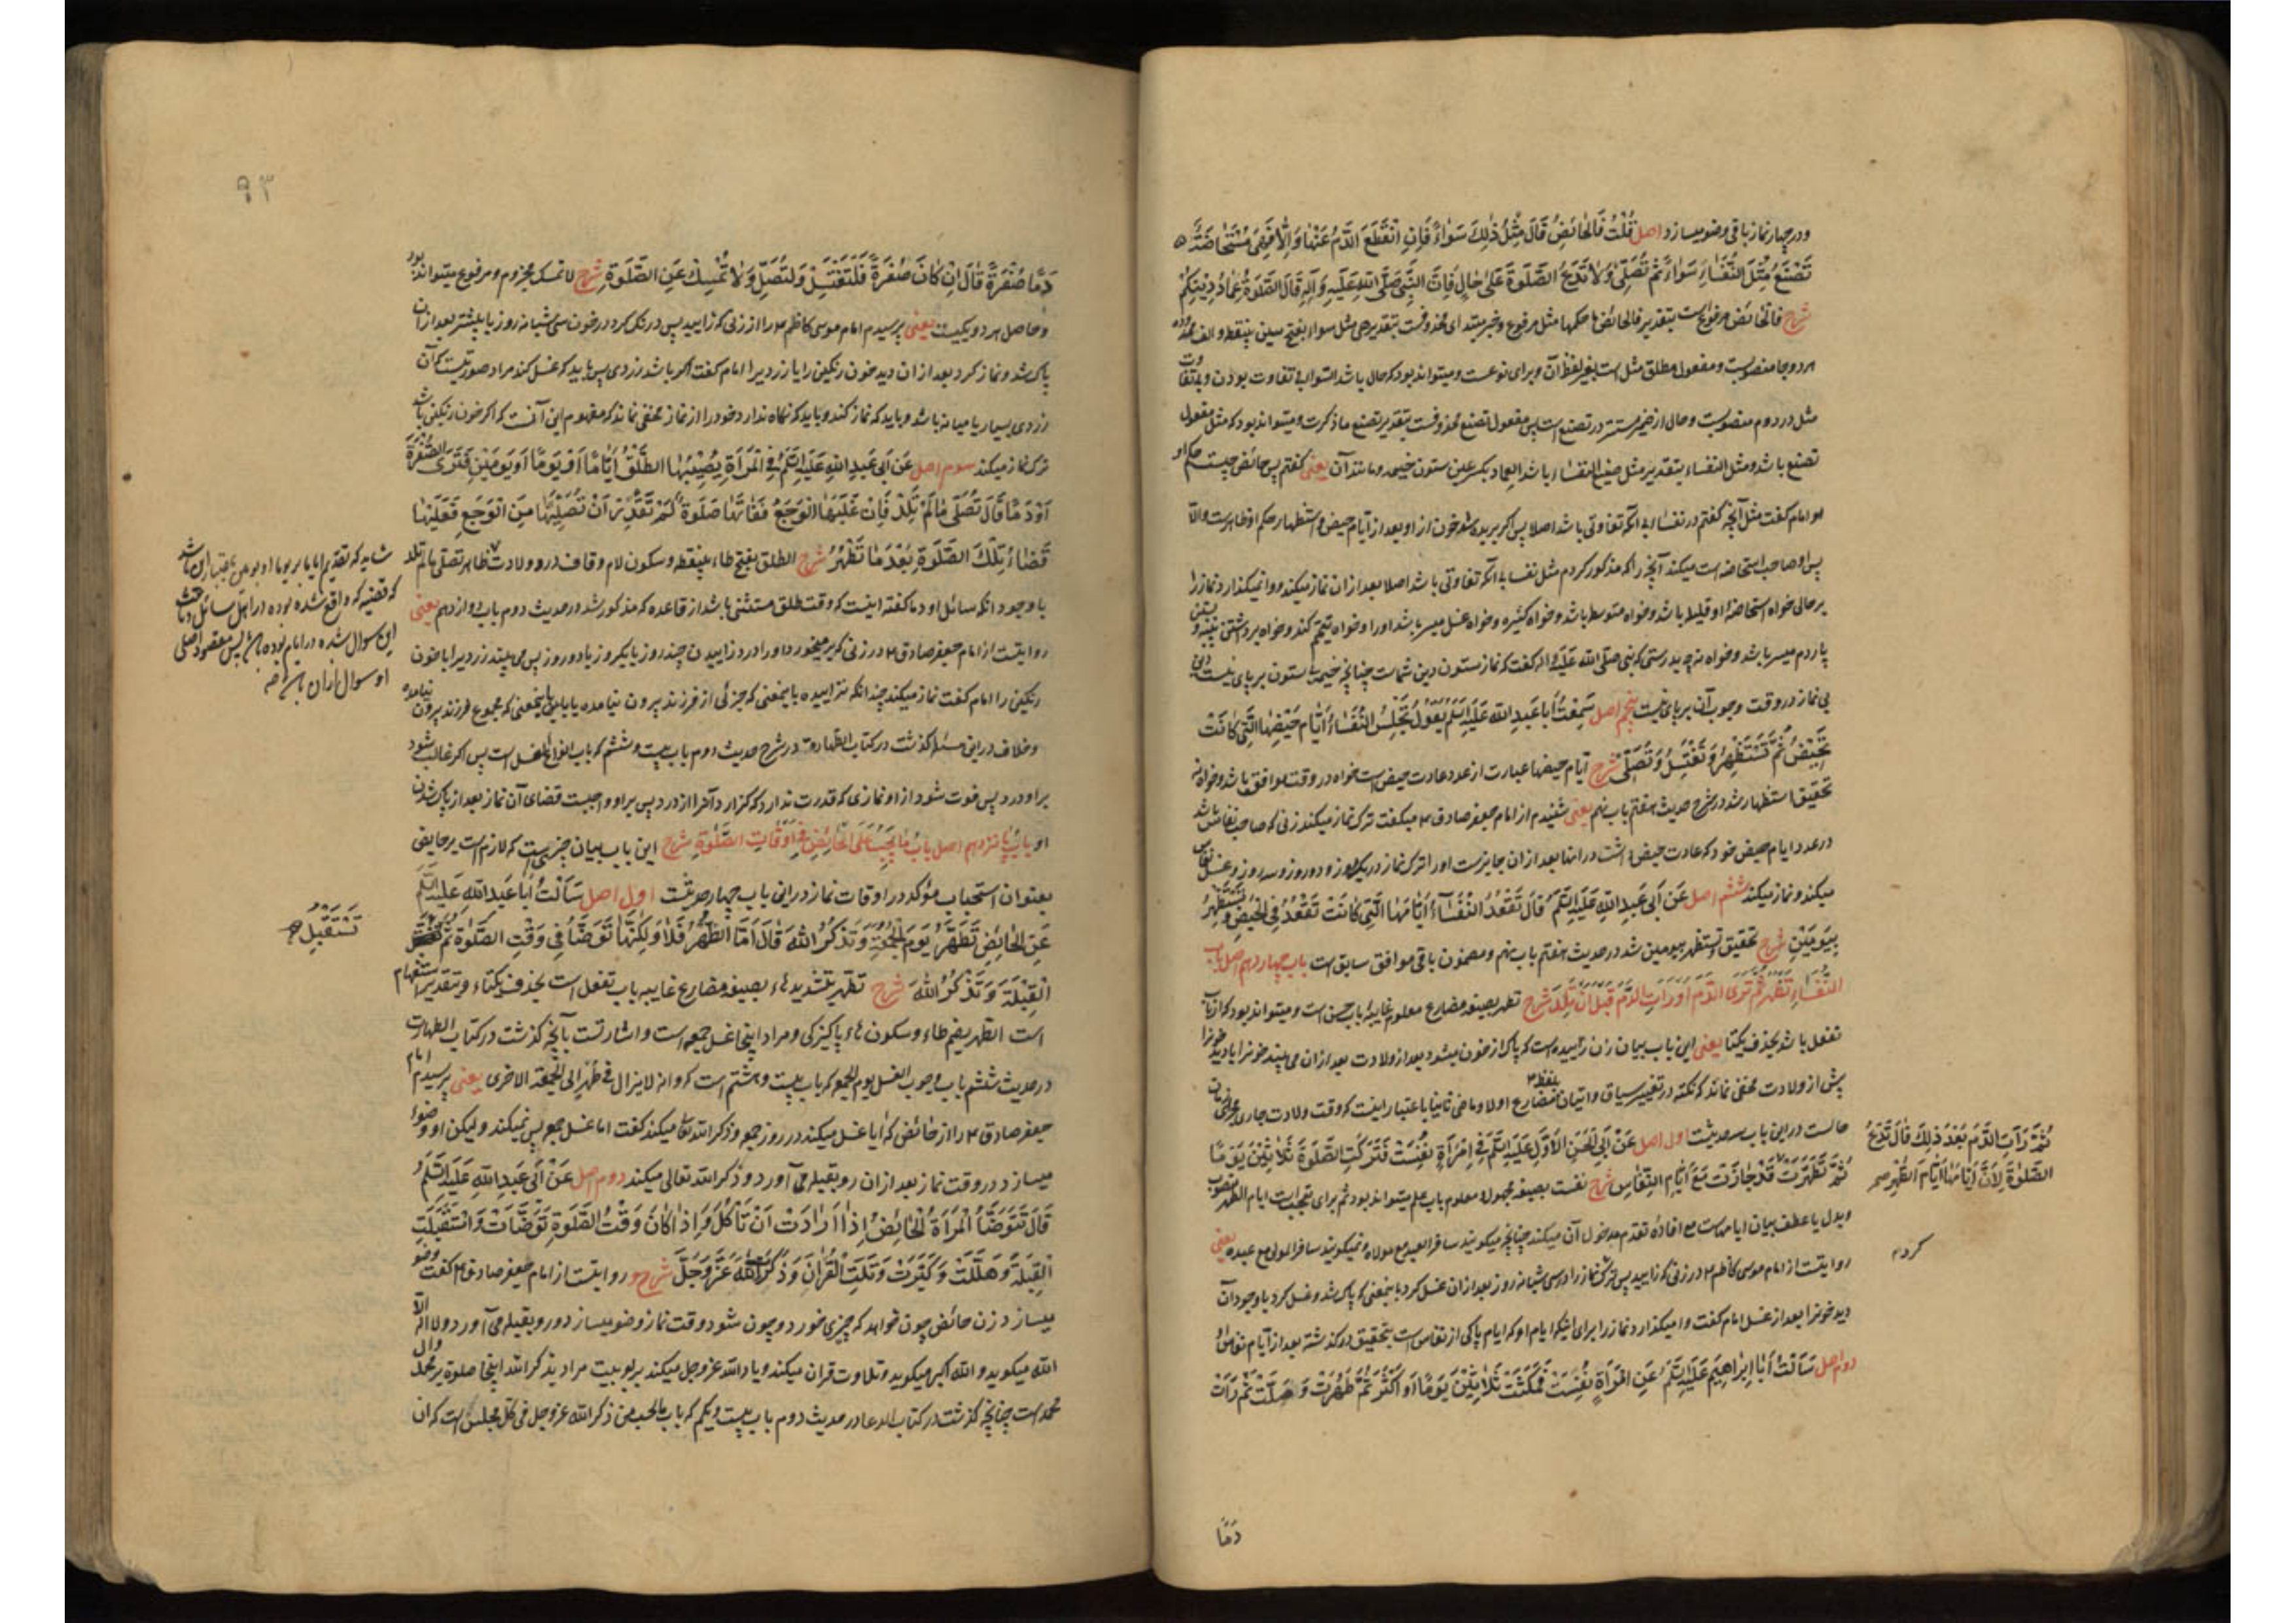 ودر چهار نماز باقی وضو میسازد اصل قُلْتُ فَالْحَائِضُ قَالَ مِثْلُ ذٰلِكَ سَوَاءً فَإِنِ انْقَطَعَ الدَّمُ عَنْهَا وَإِلَّا فَهِيَ مُسْتَحَاضَةٌ
تَصْنَعُ مِثْلَ النُّفَسَاءِ سَوَاءً ثُمَّ تُصَلِّي وَلَا تَدَعُ الصَّلٰوةَ عَلَى حَالٍ فَإِنَّ النَّبِيَّ صَلَّى اللهُ عَلَيْهِ وَآلِهِ قَالَ الصَّلٰوةُ عِمَادُ دِينِكُمْ
شرح فالحائض مرفوع است بتقدیر فالحائض ما حکمها مثل مرفوع وخبر مبتدای محذوفست بتقدیر هی مثل سواء بفتح سین بینقطه والف ممدوده
هر دو جا منصوبست ومفعول مطلق مثل است بغیر لفظ آن وبرای نوعست ومیتواند بود که حال باشد السواء بی تفاوت بودن وبی تفاوت
مثل در دوم منصوبست وحال از ضمیر مستتر در تصنع است پس مفعول تصنع محذوفست بتقدیر تصنع ما ذکرت ومیتواند بود که مثل مفعول
تصنع باشد ومثل النفساء بتقدیر مثل صنیع النفساء باشد العماد بکسر عین ستون خیمه ومانند آن یعنی گفتم پس حائض چیست حکم او
امام گفت مثل آنچه گفتم در نفسا بی آنکه تفاوتی باشد اصلا پس اگر بریده شد خون از او بعد از ایام حیض واستظهار حکم او ظاهرست والا
پس او صاحب استحاضه است میکند آنچه را که مذکور کردم مثل نفسا بی آنکه تفاوتی باشد اصلا بعد از آن نماز میکند ووا نمیگذارد نماز را
بر حالی خواه استحاضه او قلیله باشد وخواه متوسطه باشد وخواه کثیره وخواه غسل میسر باشد او را وخواه تیمم کند وخواه برداشتن پنبه
یا ردم میسر باشد وخواه نه چه بدرستی که نبی صلی الله علیه وآله گفت که نماز ستون دین شماست چنانچه خیمه بی ستون بر پای نیست دین
بی نماز در وقت وجوب آن بر پای نیست پنجم اصل سَمِعْتُ أَبَا عَبْدِ اللهِ عَلَيْهِ السَّلَامُ يَقُولُ تَجْلِسُ النُّفَسَاءُ أَيَّامَ حَيْضِهَا الَّتِي كَانَتْ
تَحِيضُ ثُمَّ تَسْتَظْهِرُ وَتَغْتَسِلُ وَتُصَلِّي شرح ایام حیضها عبارت از عدد عادت حیض است خواه در وقت موافق باشد وخواه نه
تحقیق استظهار شد در شرح حدیث هفتم باب نهم یعنی شنیدم از امام جعفر صادق ع میگفت ترک نماز میکند زنی که صاحب نفاس باشد
در عدد ایام حیض خود که عادت حیض داشت در آنها بعد از آن جایزست او را ترک نماز در یک روز ودو روز وسه روز وغسل نفاس
میکند ونماز میکند ششم اصل عَنْ أَبِي عَبْدِ اللهِ عَلَيْهِ السَّلَامُ قَالَ تَقْعُدُ النُّفَسَاءُ أَيَّامَهَا الَّتِي كَانَتْ تَقْعُدُ فِي الْحَيْضِ وَتَسْتَظْهِرُ
بِيَوْمَيْنِ شرح تحقیق وتستظهر بیومین شد در حدیث هفتم باب نهم ومضمون باقی موافق سابق است باب چهاردهم اصل باب
النُّفَسَاءِ تَطْهُرُ ثُمَّ تَرَى الدَّمَ أَوْ رَأَتِ الدَّمَ قَبْلَ أَنْ تَلِدَ شرح تطهر بصیغه مضارع معلوم غایبه باب حسن است ومیتواند بود که از باب
تفعل باشد بحذف یکتا یعنی این باب بیان زن زاییده است که پاک از خون میشود بعد از ولادت بعد از آن می بیند خون را یا دید خون را
پیش از ولادت مخفی نماند که نکته در تغییر سیاق واتیان بلفظ مضارع اولا وماضی ثانیا باعتبار اینست که وقت ولادت جاری مجرای زمان
حالست در این باب سه حدیثست اول اصل عَنْ أَبِي الْحَسَنِ الْأَوَّلِ عَلَيْهِ السَّلَامُ فِي امْرَأَةٍ نَفِسَتْ فَتَرَكَتِ الصَّلٰوةَ ثَلَاثِينَ يَوْمًا
ثُمَّ تَطَهَّرَتْ قَدْ جَازَتْ مَعَ أَيَّامِ النِّفَاسِ شرح نفست بصیغه مجهول ومعلوم باب علم میتواند بود ثم برای تعجبست ایام الطهر منصوب
وبدل یا عطف بیان ایامهاست مع افاده تقدم مدخول آن میکند چنانچه میگویند سافر العبد مع مولاه ونمیگویند سافر المولی مع عبده یعنی
روایتست از امام موسی کاظم ع در زنی که زایید پس ترک نماز را در سی شبانه روز بعد از آن غسل کرد باینمعنی که پاک شد وغسل کرد با وجود آن
دید خون را بعد از غسل امام گفت وا میگذارد نماز را برای اینکه ایام او که ایام پاکی از نفاس است بتحقیق در گذشته بعد از ایام نفاس او
دوم اصل سَأَلْتُ أَبَا إِبْرَاهِيمَ عَلَيْهِ السَّلَامُ عَنِ امْرَأَةٍ نَفِسَتْ فَمَكَثَتْ ثَلَاثِينَ يَوْمًا أَوْ أَكْثَرَ ثُمَّ طَهُرَتْ وَصَلَّتْ ثُمَّ رَأَتْ
ثُمَّ رَأَتِ الدَّمَ بَعْدَ ذٰلِكَ قَالَ تَدَعُ
الصَّلٰوةَ لِأَنَّ أَيَّامَهَا أَيَّامَ الطُّهْرِ صح
کرد
دَمًا
٩٣
دَمًا صُفْرَةً قَالَ إِنْ كَانَ صُفْرَةً فَلْتَغْتَسِلْ وَلْتُصَلِّ وَلَا تُمْسِكْ عَنِ الصَّلٰوةِ شرح لا تمسک مجزوم ومرفوع میتواند بود
وحاصل هر دو یکیست یعنی پرسیدم امام موسی کاظم ع را از زنی که زایید پس درنگ کرد در خون سی شبانه روز یا بیشتر بعد از آن
پاک شد ونماز کرد بعد از آن دید خون رنگین را یا زرد را امام گفت اگر باشد زردی پس باید که غسل کند مراد صورتیست که آن
زردی بسیار یا میانه باشد وباید که نماز کند وباید که نگاه ندارد خود را از نماز مخفی نماند که مفهوم این آنست که اگر خون رنگین باشد
ترک نماز میکند سوم اصل عَنْ أَبِي عَبْدِ اللهِ عَلَيْهِ السَّلَامُ فِي الْمَرْأَةِ يُصِيبُهَا الطَّلْقُ أَيَّامًا أَوْ يَوْمًا أَوْ يَوْمَيْنِ فَتَرَى الصُّفْرَةَ
أَوْ دَمًا قَالَ تُصَلِّي مَا لَمْ تَلِدْ فَإِنْ غَلَبَهَا الْوَجَعُ فَفَاتَهَا صَلٰوةٌ لَمْ تَقْدِرْ أَنْ تُصَلِّيَهَا مِنَ الْوَجَعِ فَعَلَيْهَا
قَضَاءُ تِلْكَ الصَّلٰوةِ بَعْدَ مَا تَطْهُرُ شرح الطلق بفتح طاء بینقطه وسکون لام وقاف درد ولادت ظاهر تصلی ما لم تلد
با وجود آنکه سائل او دما گفته اینست که وقت طلق مستثنی باشد از قاعده که مذکور شد در حدیث دوم باب دوازدهم یعنی
روایتست از امام جعفر صادق ع در زنی که بر میخورد او را درد زاییدن چند روز یا یکروز یا دو روز پس می بیند زرد را یا خون
رنگین را امام گفت نماز میکند چندانکه نزاییده باینمعنی که جزئی از فرزند بیرون نیامده یا باینمعنی که مجموع فرزند بیرون نیامده
وخلاف در این مسئله گذشت در کتاب الطهارة در شرح حدیث دوم باب بیست وششم که باب انواع الغسل است پس اگر غالب شود
بر او درد پس فوت شود از او نمازی که قدرت ندارد که گزارد آن را از درد پس بر او واجبست قضای آن نماز بعد از پاک شدن
او باب پانزدهم اصل بَابُ مَا يَجِبُ عَلَى الْحَائِضِ فِي أَوْقَاتِ الصَّلٰوةِ شرح این باب بیان چیزیست که لازم است بر حایض
بعنوان استحباب مؤکد در اوقات نماز در این باب چهار حدیثست اول اصل سَأَلْتُ أَبَا عَبْدِ اللهِ عَلَيْهِ السَّلَامُ
عَنِ الْحَائِضِ تَطَهَّرُ يَوْمَ الْجُمُعَةِ وَتَذْكُرُ اللهَ قَالَ أَمَّا الطُّهْرُ فَلَا وَلٰكِنَّهَا تَوَضَّأُ فِي وَقْتِ الصَّلٰوةِ ثُمَّ
الْقِبْلَةَ وَتَذْكُرُ اللهَ شرح تطهر بتشدید هاء بصیغه مضارع غایبه باب تفعل است بحذف یکتاء وبتقدیر استفهام
است الطهر بضم طاء وسکون هاء پاکیزگی ومراد اینجا غسل جمعه است واشارتست بآنچه گذشت در کتاب الطهارت
در حدیث ششم باب وجوب الغسل یوم الجمعه که باب بیست وهشتم است که وانه لایزال فی طهر الی الجمعة الاخری یعنی پرسیدم امام
جعفر صادق ع را از حائض که آیا غسل میکند در روز جمعه وذکر الله تعالی میکند گفت اما غسل جمعه پس نمیکند ولیکن او وضوء
میسازد در وقت نماز بعد از آن رو بقبله می آورد وذکر الله تعالی میکند دوم اصل عَنْ أَبِي عَبْدِ اللهِ عَلَيْهِ السَّلَامُ
قَالَ تَتَوَضَّأُ الْمَرْأَةُ الْحَائِضُ إِذَا أَرَادَتْ أَنْ تَأْكُلَ وَإِذَا كَانَ وَقْتُ الصَّلٰوةِ تَوَضَّأَتْ وَاسْتَقْبَلَتِ
الْقِبْلَةَ وَهَلَّلَتْ وَكَبَّرَتْ وَتَلَتِ الْقُرْآنَ وَذَكَرَتِ اللهَ عَزَّ وَجَلَّ شرح روایتست از امام جعفر صادق ع گفت وضو
میسازد زن حائض چون خواهد که چیزی خورد وچون شود وقت نماز وضو میسازد ورو بقبله می آورد ولا اله الا
الله میگوید والله اکبر میگوید وتلاوت قران میکند ویاد الله عز وجل میکند بربوبیت مراد بذکر الله اینجا صلوة بر محمد وآل
محمدست چنانچه گذشت در کتاب الدعا در حدیث دوم باب بیست ویکم که باب ما یجب من ذکر الله عز وجل فی کل مجلس است که ان
شاید که تقدیم ایاما بر یوما او یومین باعتبار این باشد
که قضیه که واقع شده بوده در اهل سائل وباعث
این سوال شده در ایام بوده باشد پس مقصود اصلی
او سوال از آن باشد
تَسْتَقْبِلُ صح